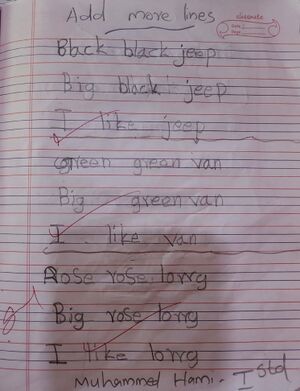 Add more lines
Black black jeep
Big black jeep
I like jeep
green green van
Big green van
I like van
Rose rose lorry
Big rose lorry
I like lorry
Muhammed Hami. I Std